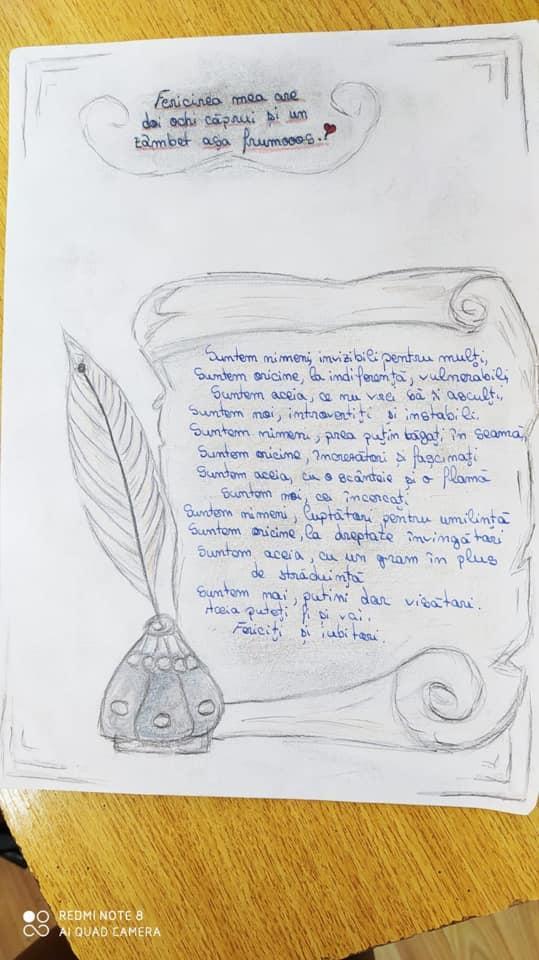 Fericirea mea are
doi ochi căprui și un
zâmbet așa frumooos.
Suntem nimeni, invizibili pentru mulți,
Suntem oricine, la indiferență, vulnerabili,
Suntem aceia, ce nu vrei să-i asculți,
Suntem noi, introvertiți și instabili.
Suntem nimeni, prea puțin băgați în seama,
Suntem oricine, încrezători și fascinați
Suntem aceia, cu o scânteie și o flamă
Suntem noi, cei încercați.
Suntem nimeni, luptători pentru umilință
Suntem oricine, la dreptate învingători
Suntem, aceia, cu un gram în plus
de străduință
Suntem noi, puțini dar visători.
Aceia puteți fi și voi.
Fericiți și iubitori.
REDMI NOTE 8
AI QUAD CAMERA